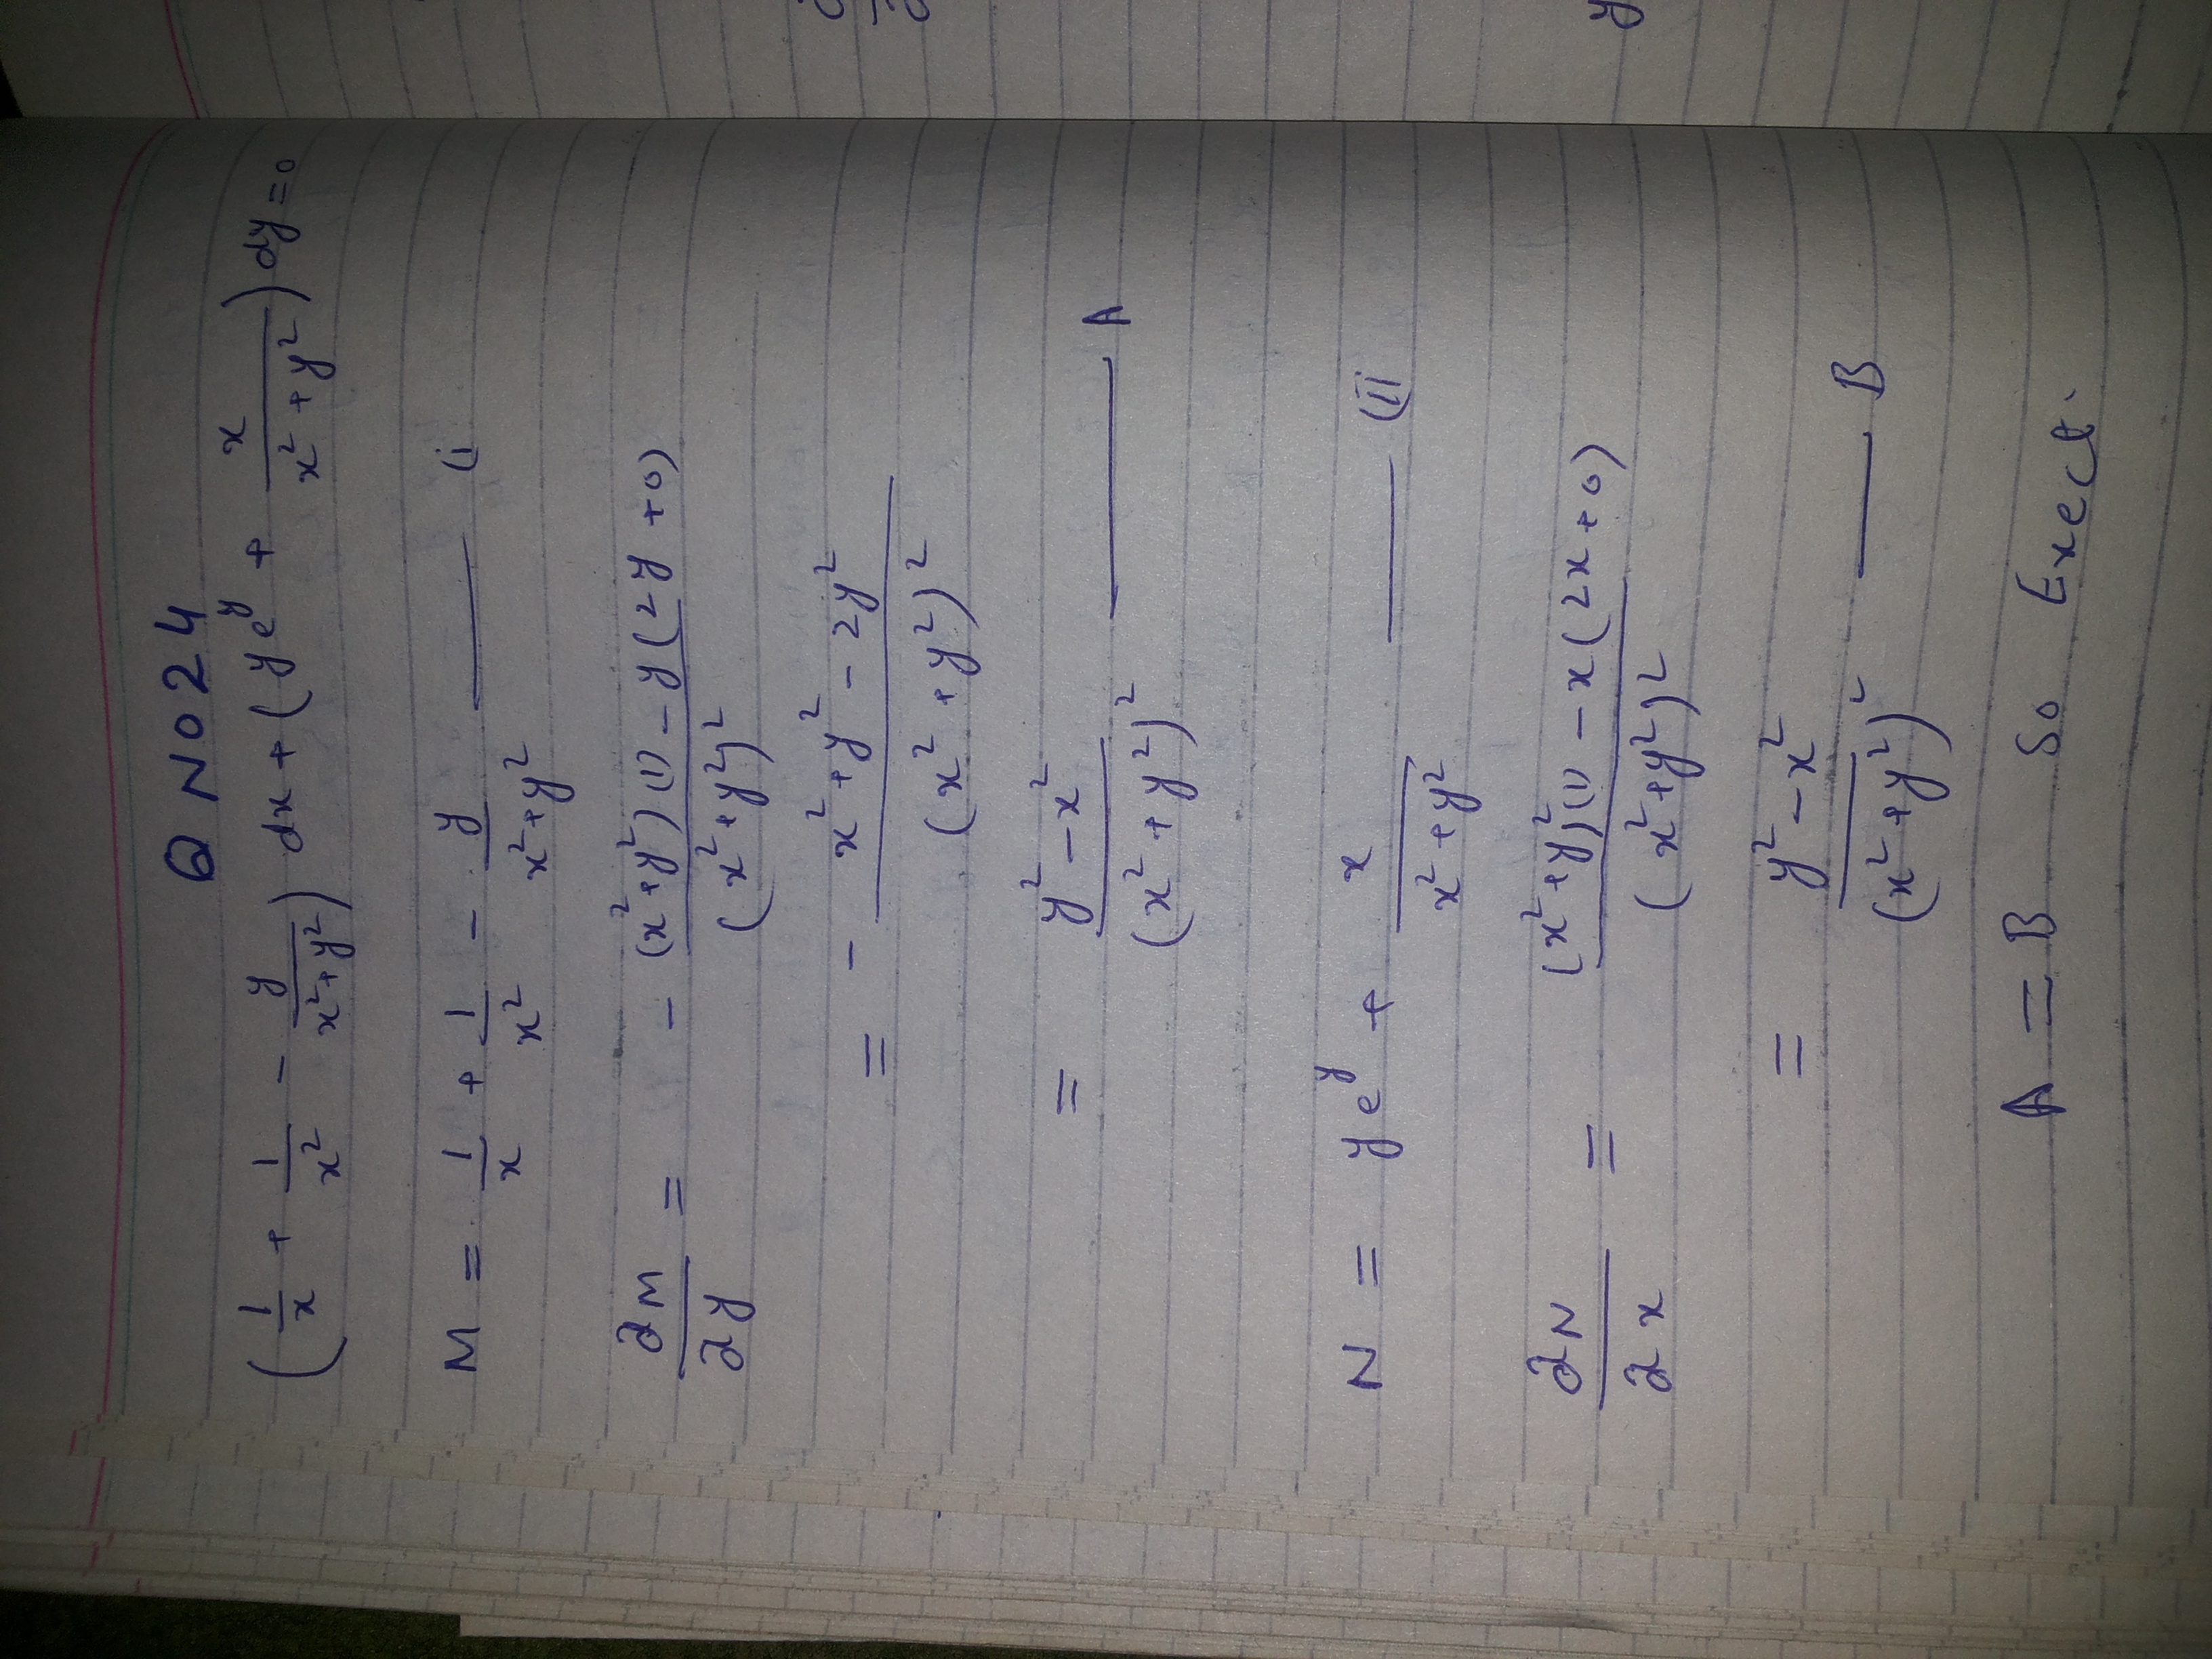 Q NO 24
(1/x + 1/x² - y/(x²+y²)) dx + (ye^y + x/(x²+y²)) dy = 0
M = 1/x + 1/x² - y/(x²+y²) —— (i
∂M/∂y = - ((x²+y²)(1) - y(2y+0))/(x²+y²)²
= - (x²+y²-2y²)/(x²+y²)²
= (y²-x²)/(x²+y²)² —— A
N = ye^y + x/(x²+y²) —— (ii
∂N/∂x = ((x²+y²)(1) - x(2x+0))/(x²+y²)²
= (y²-x²)/(x²+y²)² —— B
A = B So Exect.